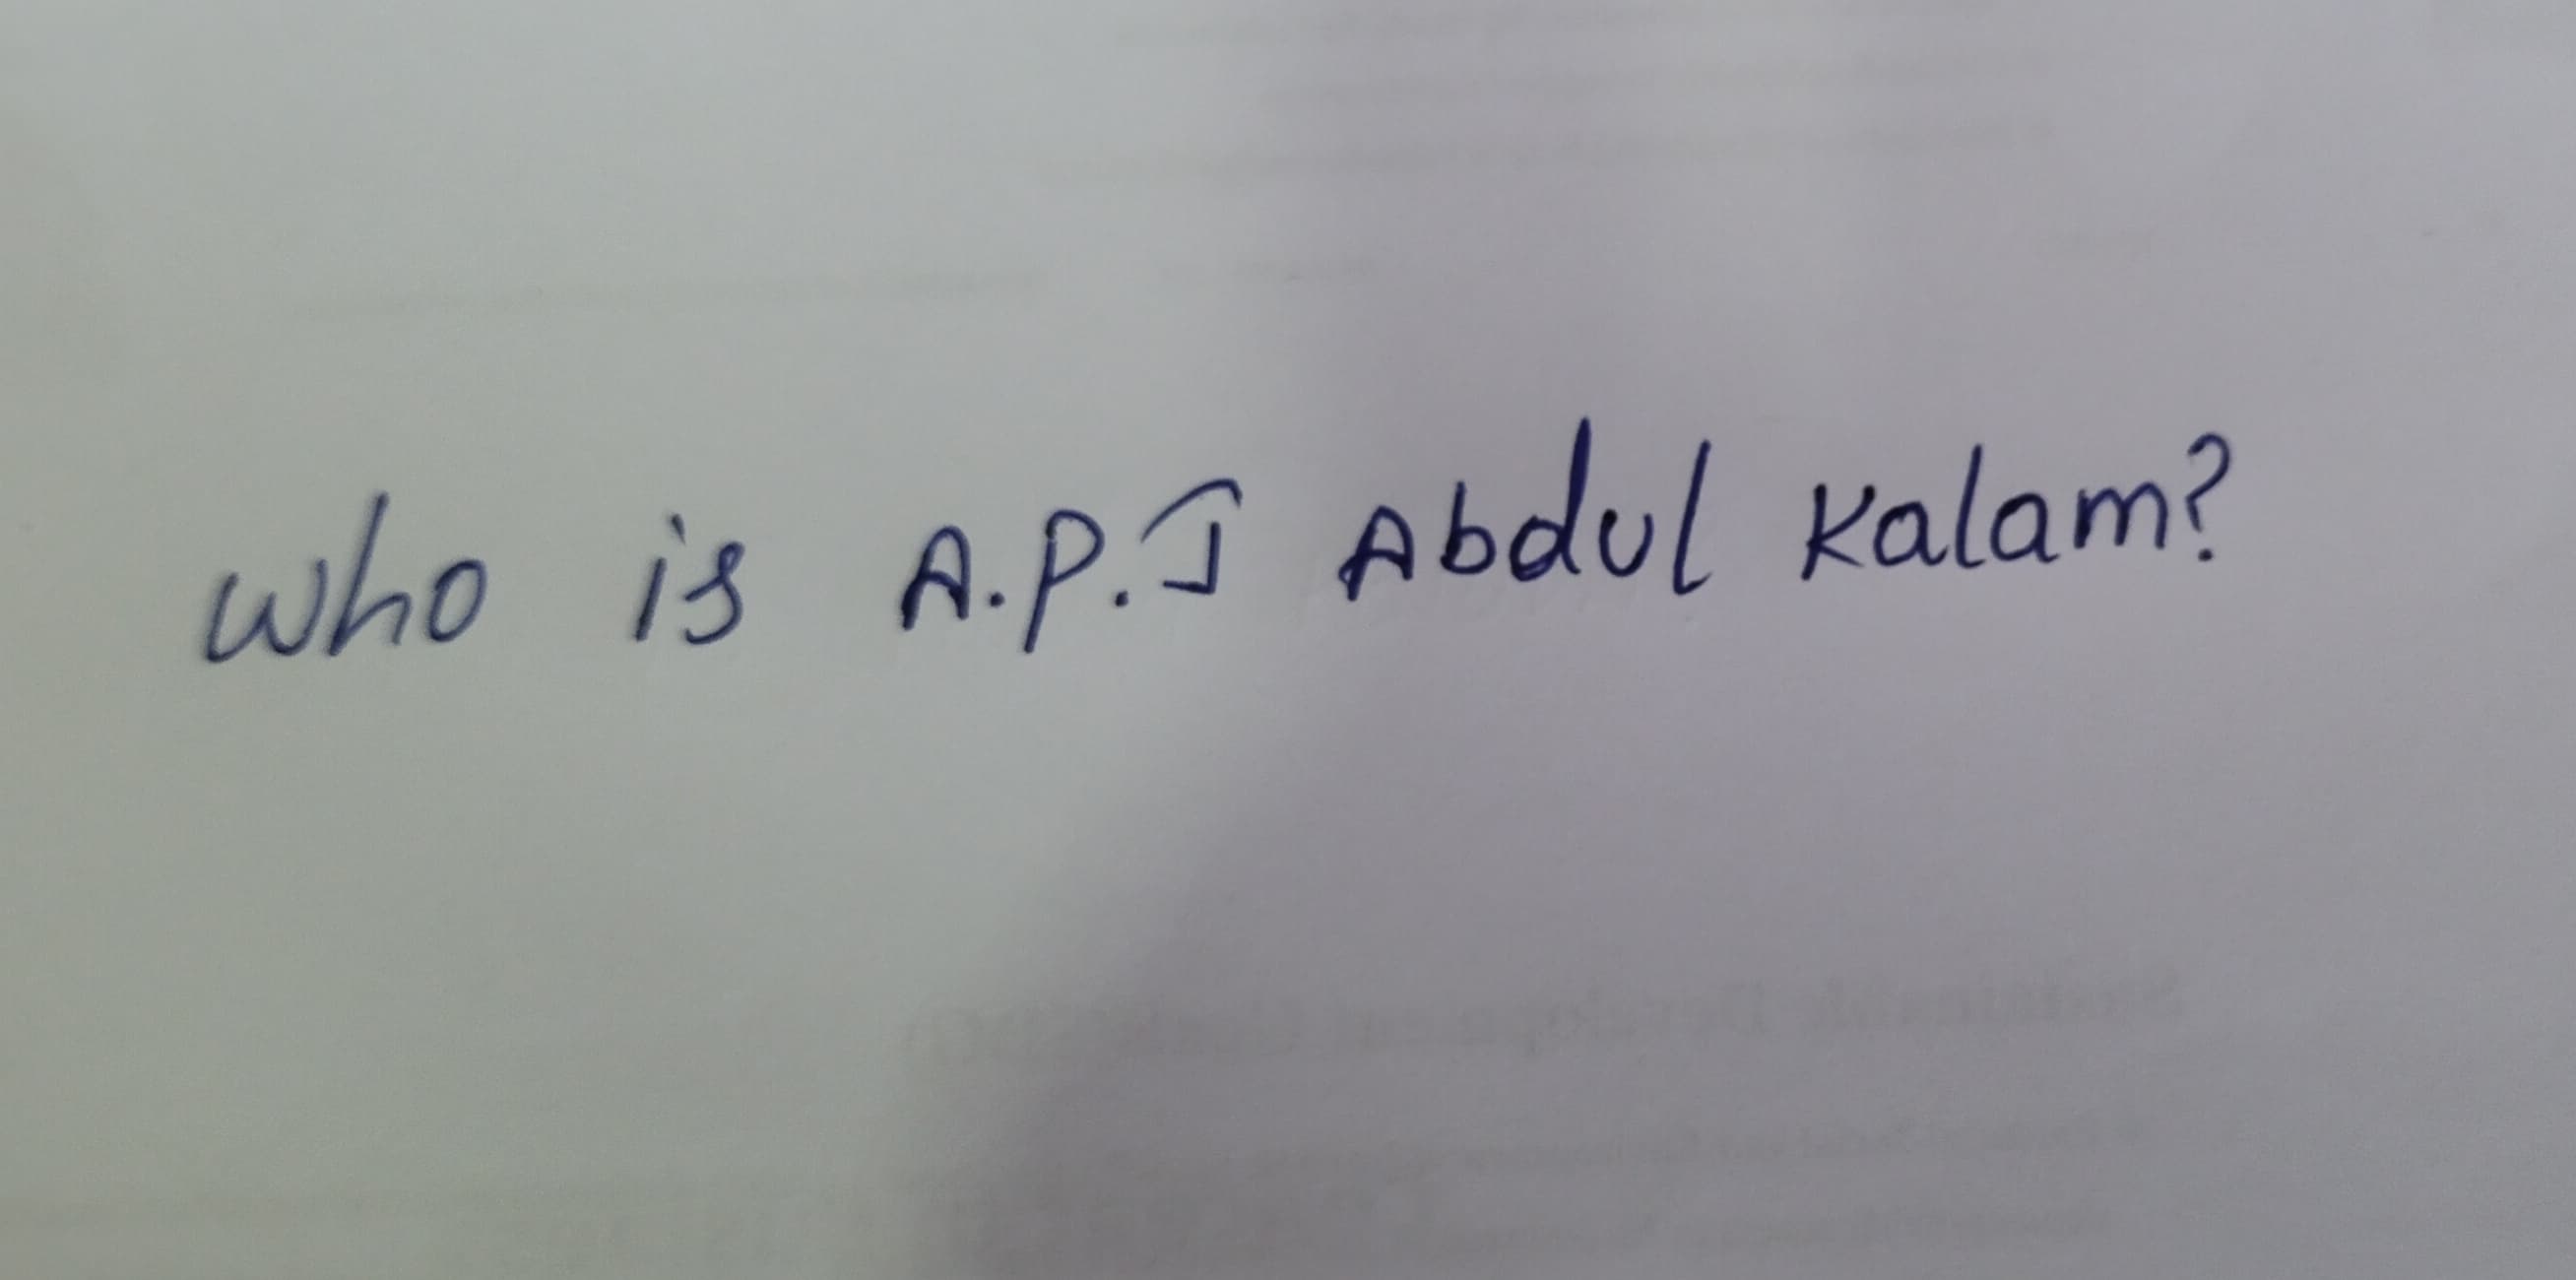 Who is A.P.J Abdul Kalam?